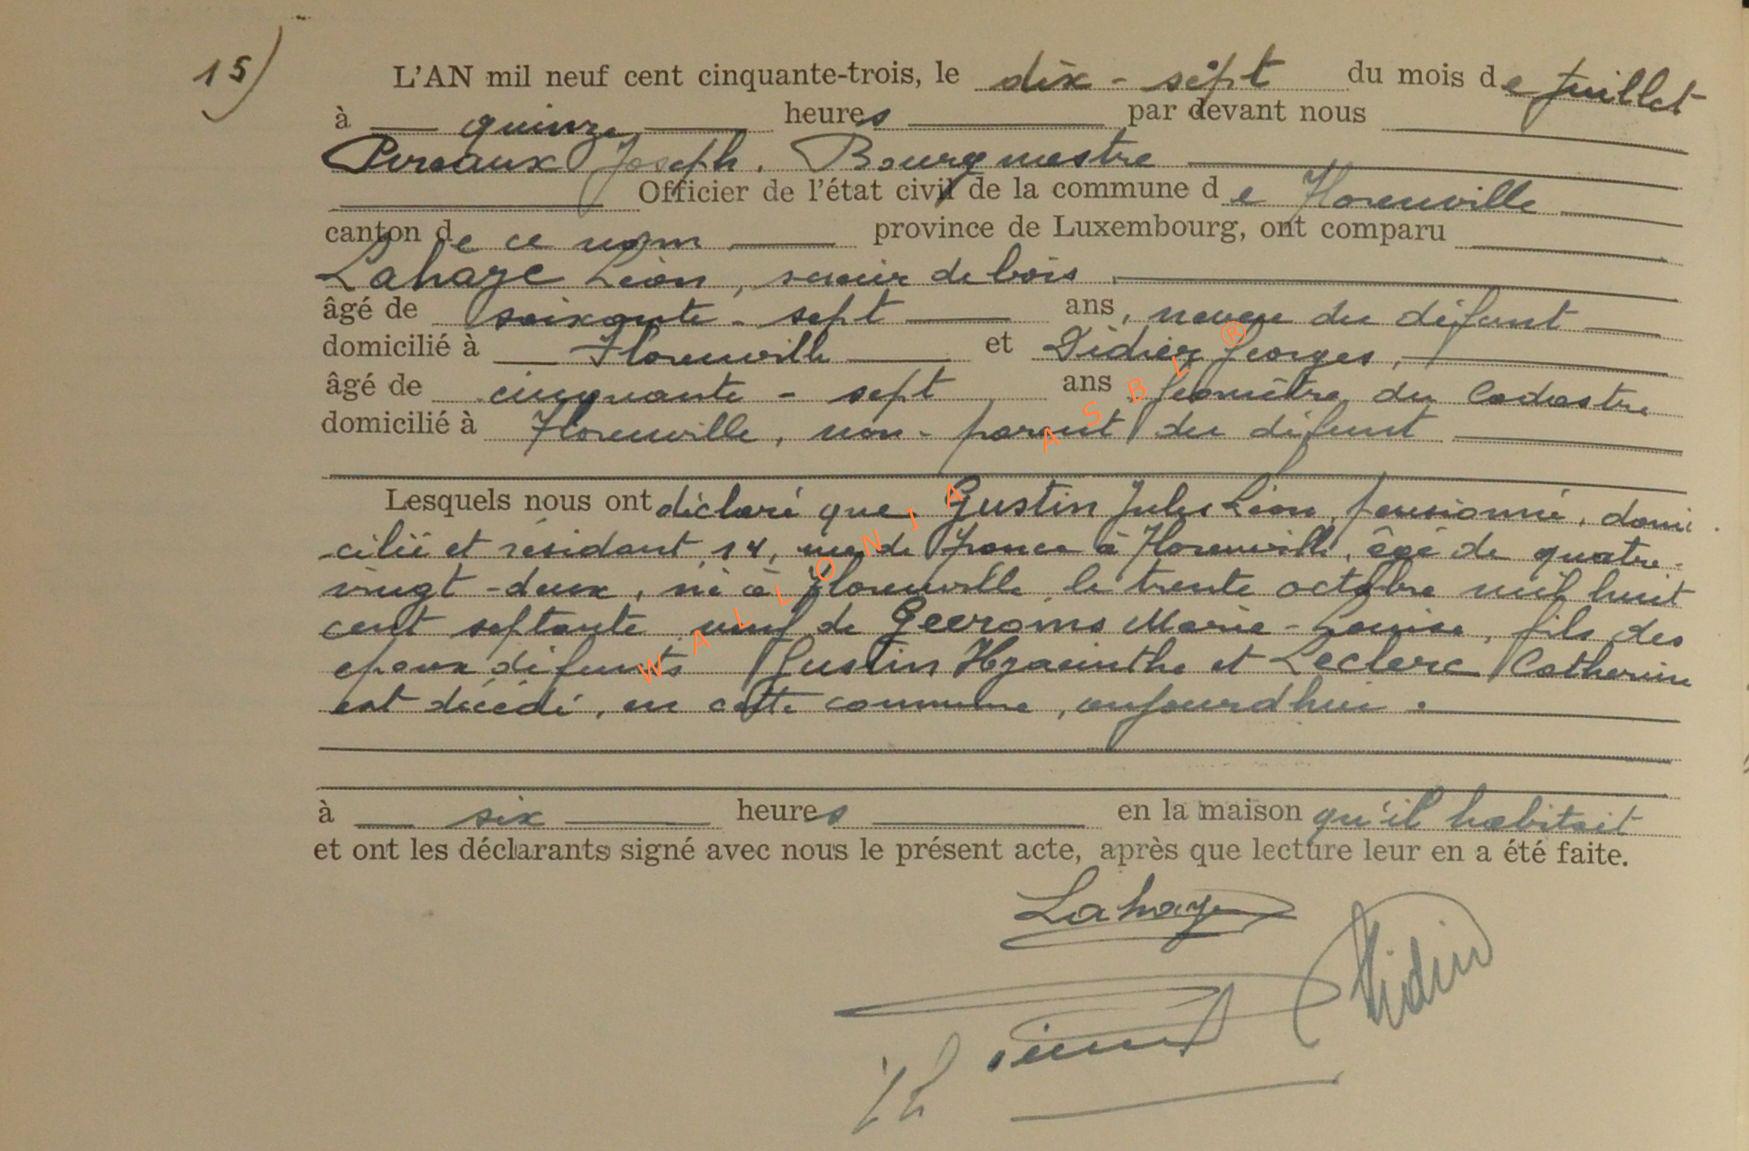 15)
L'AN mil neuf cent cinquante-trois, le dix-sept du mois de Juillet
à quinze heures par devant nous
Pireaux Joseph, Bourgmestre
Officier de l'état civil de la commune de Florenville
canton de ce nom province de Luxembourg, ont comparu
Lahaye Léon, scieur de bois
âgé de soixante-sept ans, neveu du défunt
domicilié à Florenville et Didier Georges,
âgé de cinquante-sept ans Géomètre du Cadastre
domicilié à Florenville, non-parent du défunt
Lesquels nous ont déclaré que Gustin Jules Léon, pensionné, domi
cilié et résidant 14, rue de France à Florenville, âgé de quatre-
vingt-deux, né à Florenville le trente octobre mil huit
cent septante, veuf de Geeroms Marie-Louise, fils des
époux défunts Gustin Hyacinthe et Leclerc Catherine
est décédé, en cette commune, aujourd'hui.
à six heures en la maison qu'il habitait
et ont les déclarants signé avec nous le présent acte, après que lecture leur en a été faite.
Lahaye
Didier
WALLONIA ASBL ®